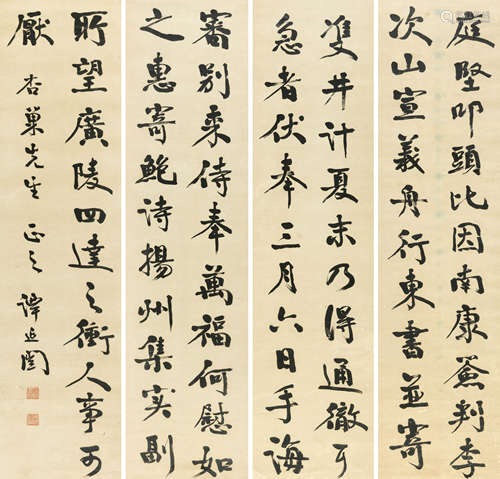 庭堅叩頭比因南康簽判李
次山宣義舟行東書並寄
雙井計夏末乃得通徹耳
急者伏奉三月六日手誨
審別來侍奉萬福何慰如
之惠寄鮑詩揚州集實副
所望廣陵四達之衝人事可
厭 杏巢先生 正之 譚延闓